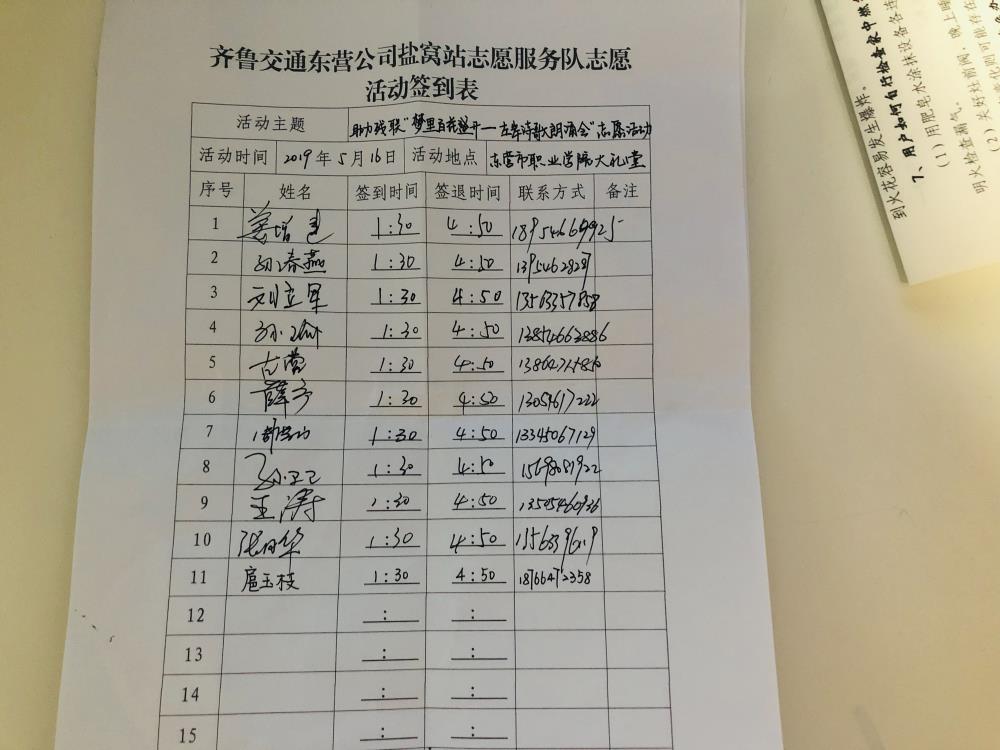 齐鲁交通东营公司盐窝站志愿服务队志愿
活动签到表
活动主题 助力残联“梦里百花盛开—左岸诗歌朗诵会”志愿活动
活动时间 2019年5月16日 活动地点 东营市职业学院大礼堂
序号 姓名 签到时间 签退时间 联系方式 备注
1 1:30 4:50
2 孙春燕 1:30 4:50
3 刘立军 1:30 4:50 13563357858
4 1:30 4:50 13854662886
5 1:30 4:50
6 薛 1:30 4:50
7 1:30 4:50 13345067129
8 孙卫己 1:30 4:50
9 王涛 1:30 4:50
10 1:30 4:50
11 扈玉枝 1:30 4:50 18766472358
12 :  :
13 :  :
14 :  :
15 :  :
到火花容易发生爆炸。
7、用户如何自行检查家中燃
(1)用肥皂水涂抹设备各连
明火检查漏气。
(2)关好灶前阀，晚上睡
变化则可能存在